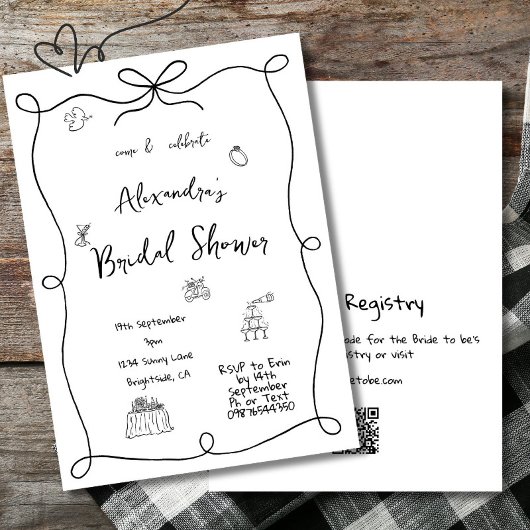 come & celebrate
Alexandra's
Bridal Shower
19th September
3pm
1234 Sunny Lane
Brightside, CA
RSVP to Erin
by 19th
september
Ph or Text
09876544350
Registry
ode for the Bride to be's
istry or visit
etobe.com